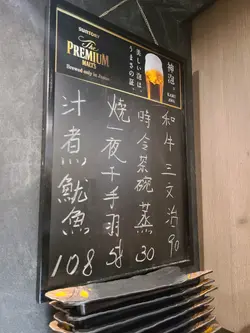 SUNTORY
The
PREMIUM
MALT'S
Brewed only in Japan
美しい泡は、
うまさの証。
神泡。
和牛三文治 90
時令茶碗蒸 30
燒一夜干手羽 58
汁煮魷魚 108